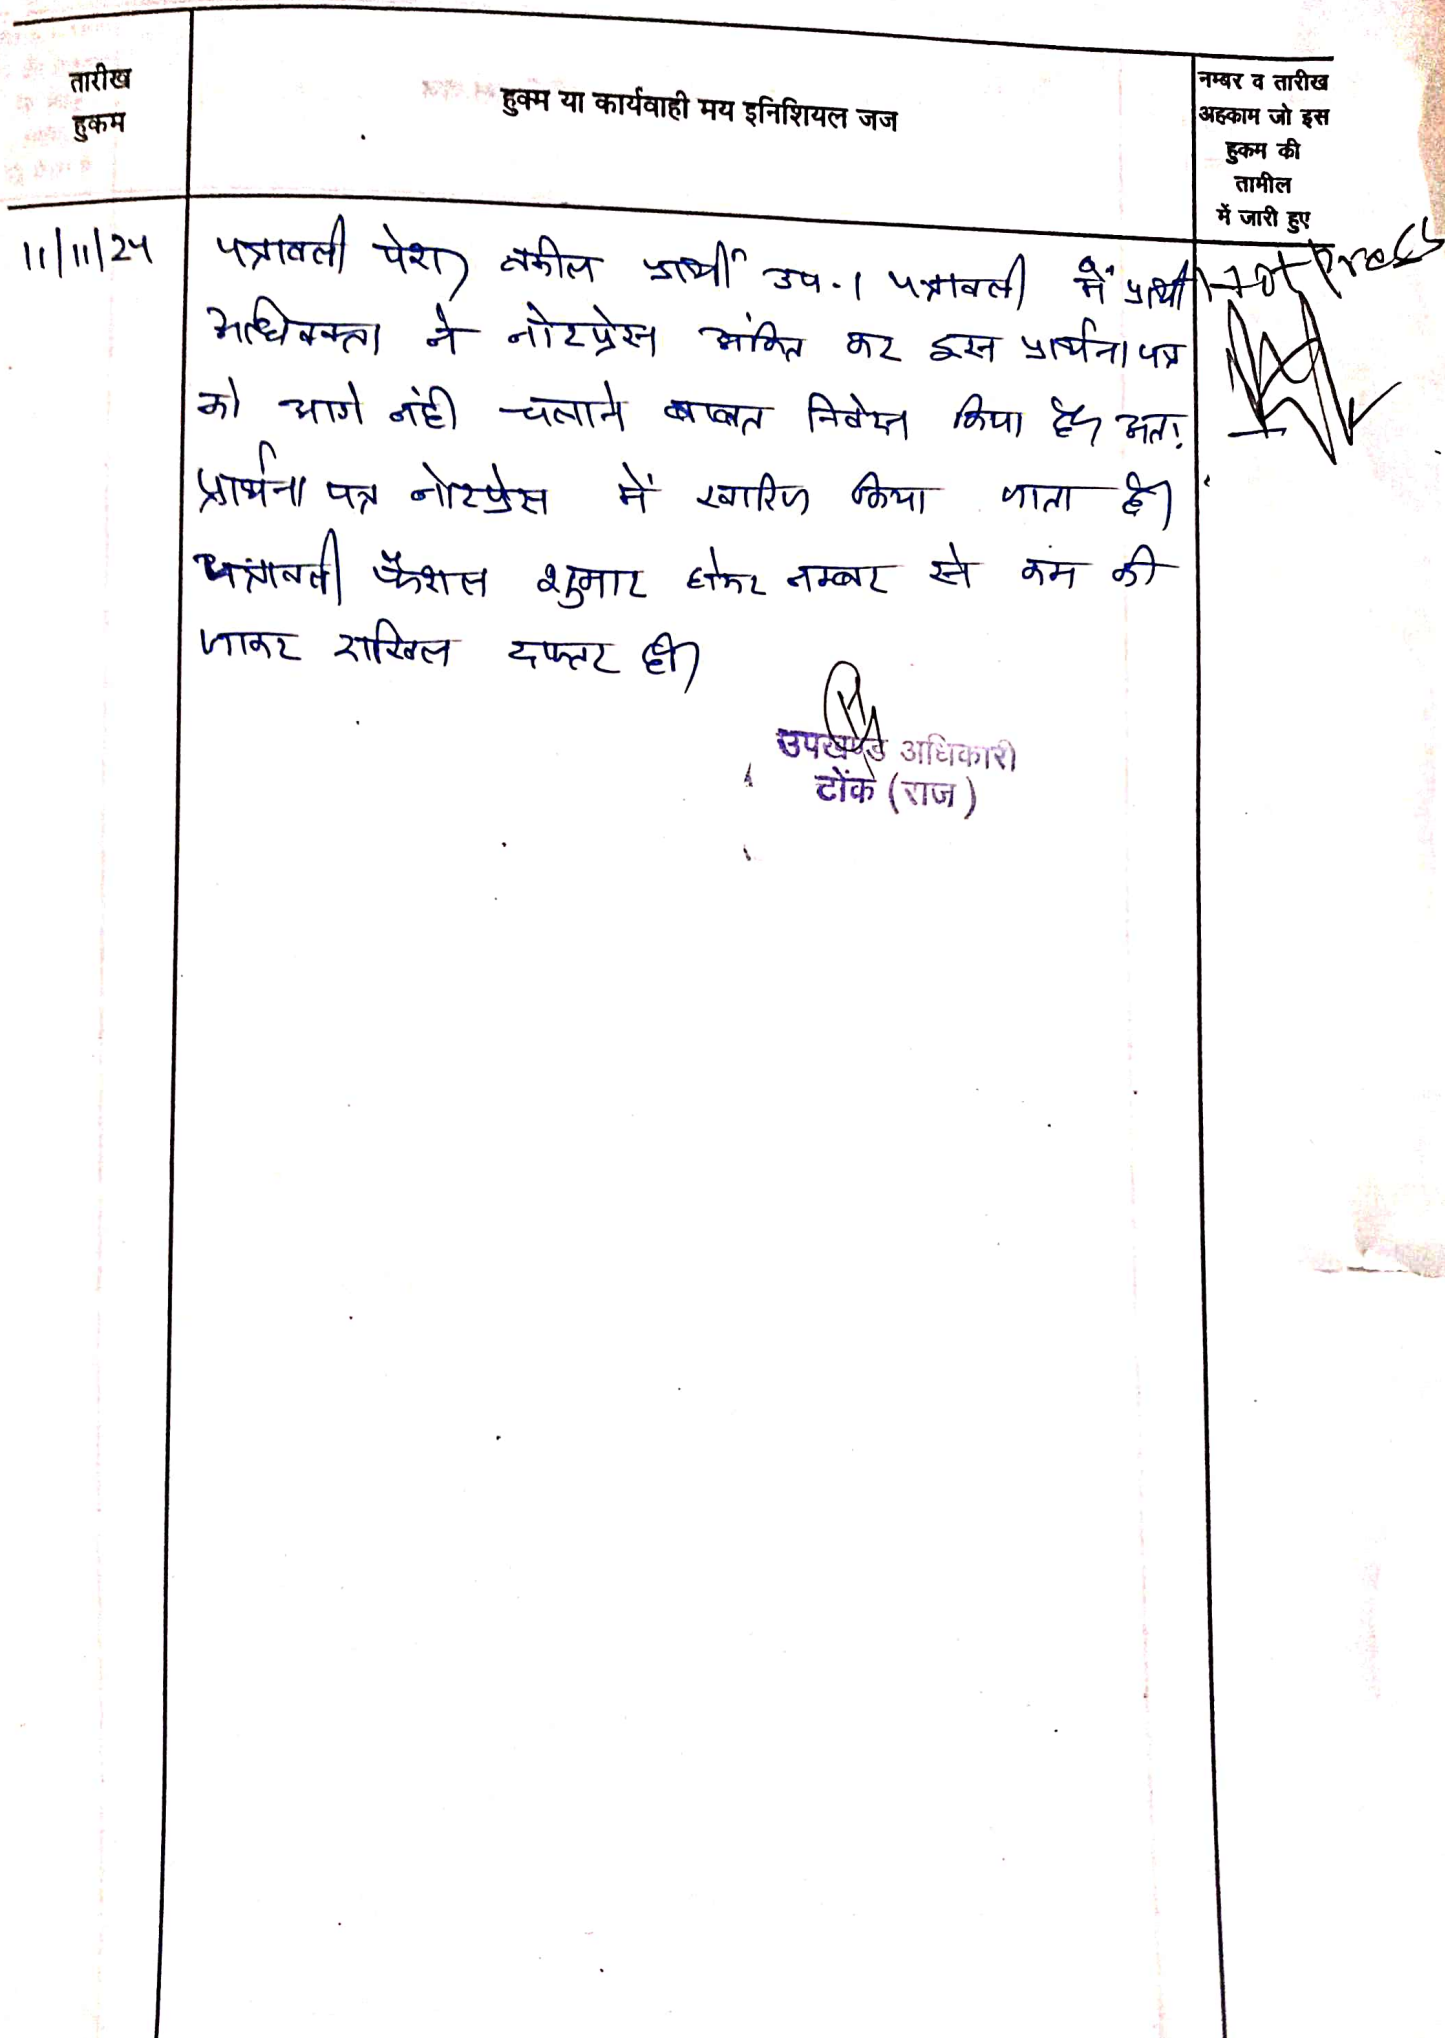 तारीख
हुकम
हुक्म या कार्यवाही मय इनिशियल जज
नम्बर व तारीख
अहकाम जो इस
हुकम की
तामील
में जारी हुए
11/11/24 पत्रावली पेश। वकील प्रार्थी उप.। पत्रावली में प्रार्थी
अधिवक्ता ने नोटप्रेस अंकित कर इस प्रार्थना पत्र
को आगे नंही चलाने बाबत निवेदन किया है। अतः
प्रार्थना पत्र नोटप्रेस में खारिज किया जाता है।
पत्रावली फैशल शुमार होकर नम्बर से कम की
जाकर दाखिल दफ्तर हो।
Not press
उपखण्ड अधिकारी
टोंक (राज)